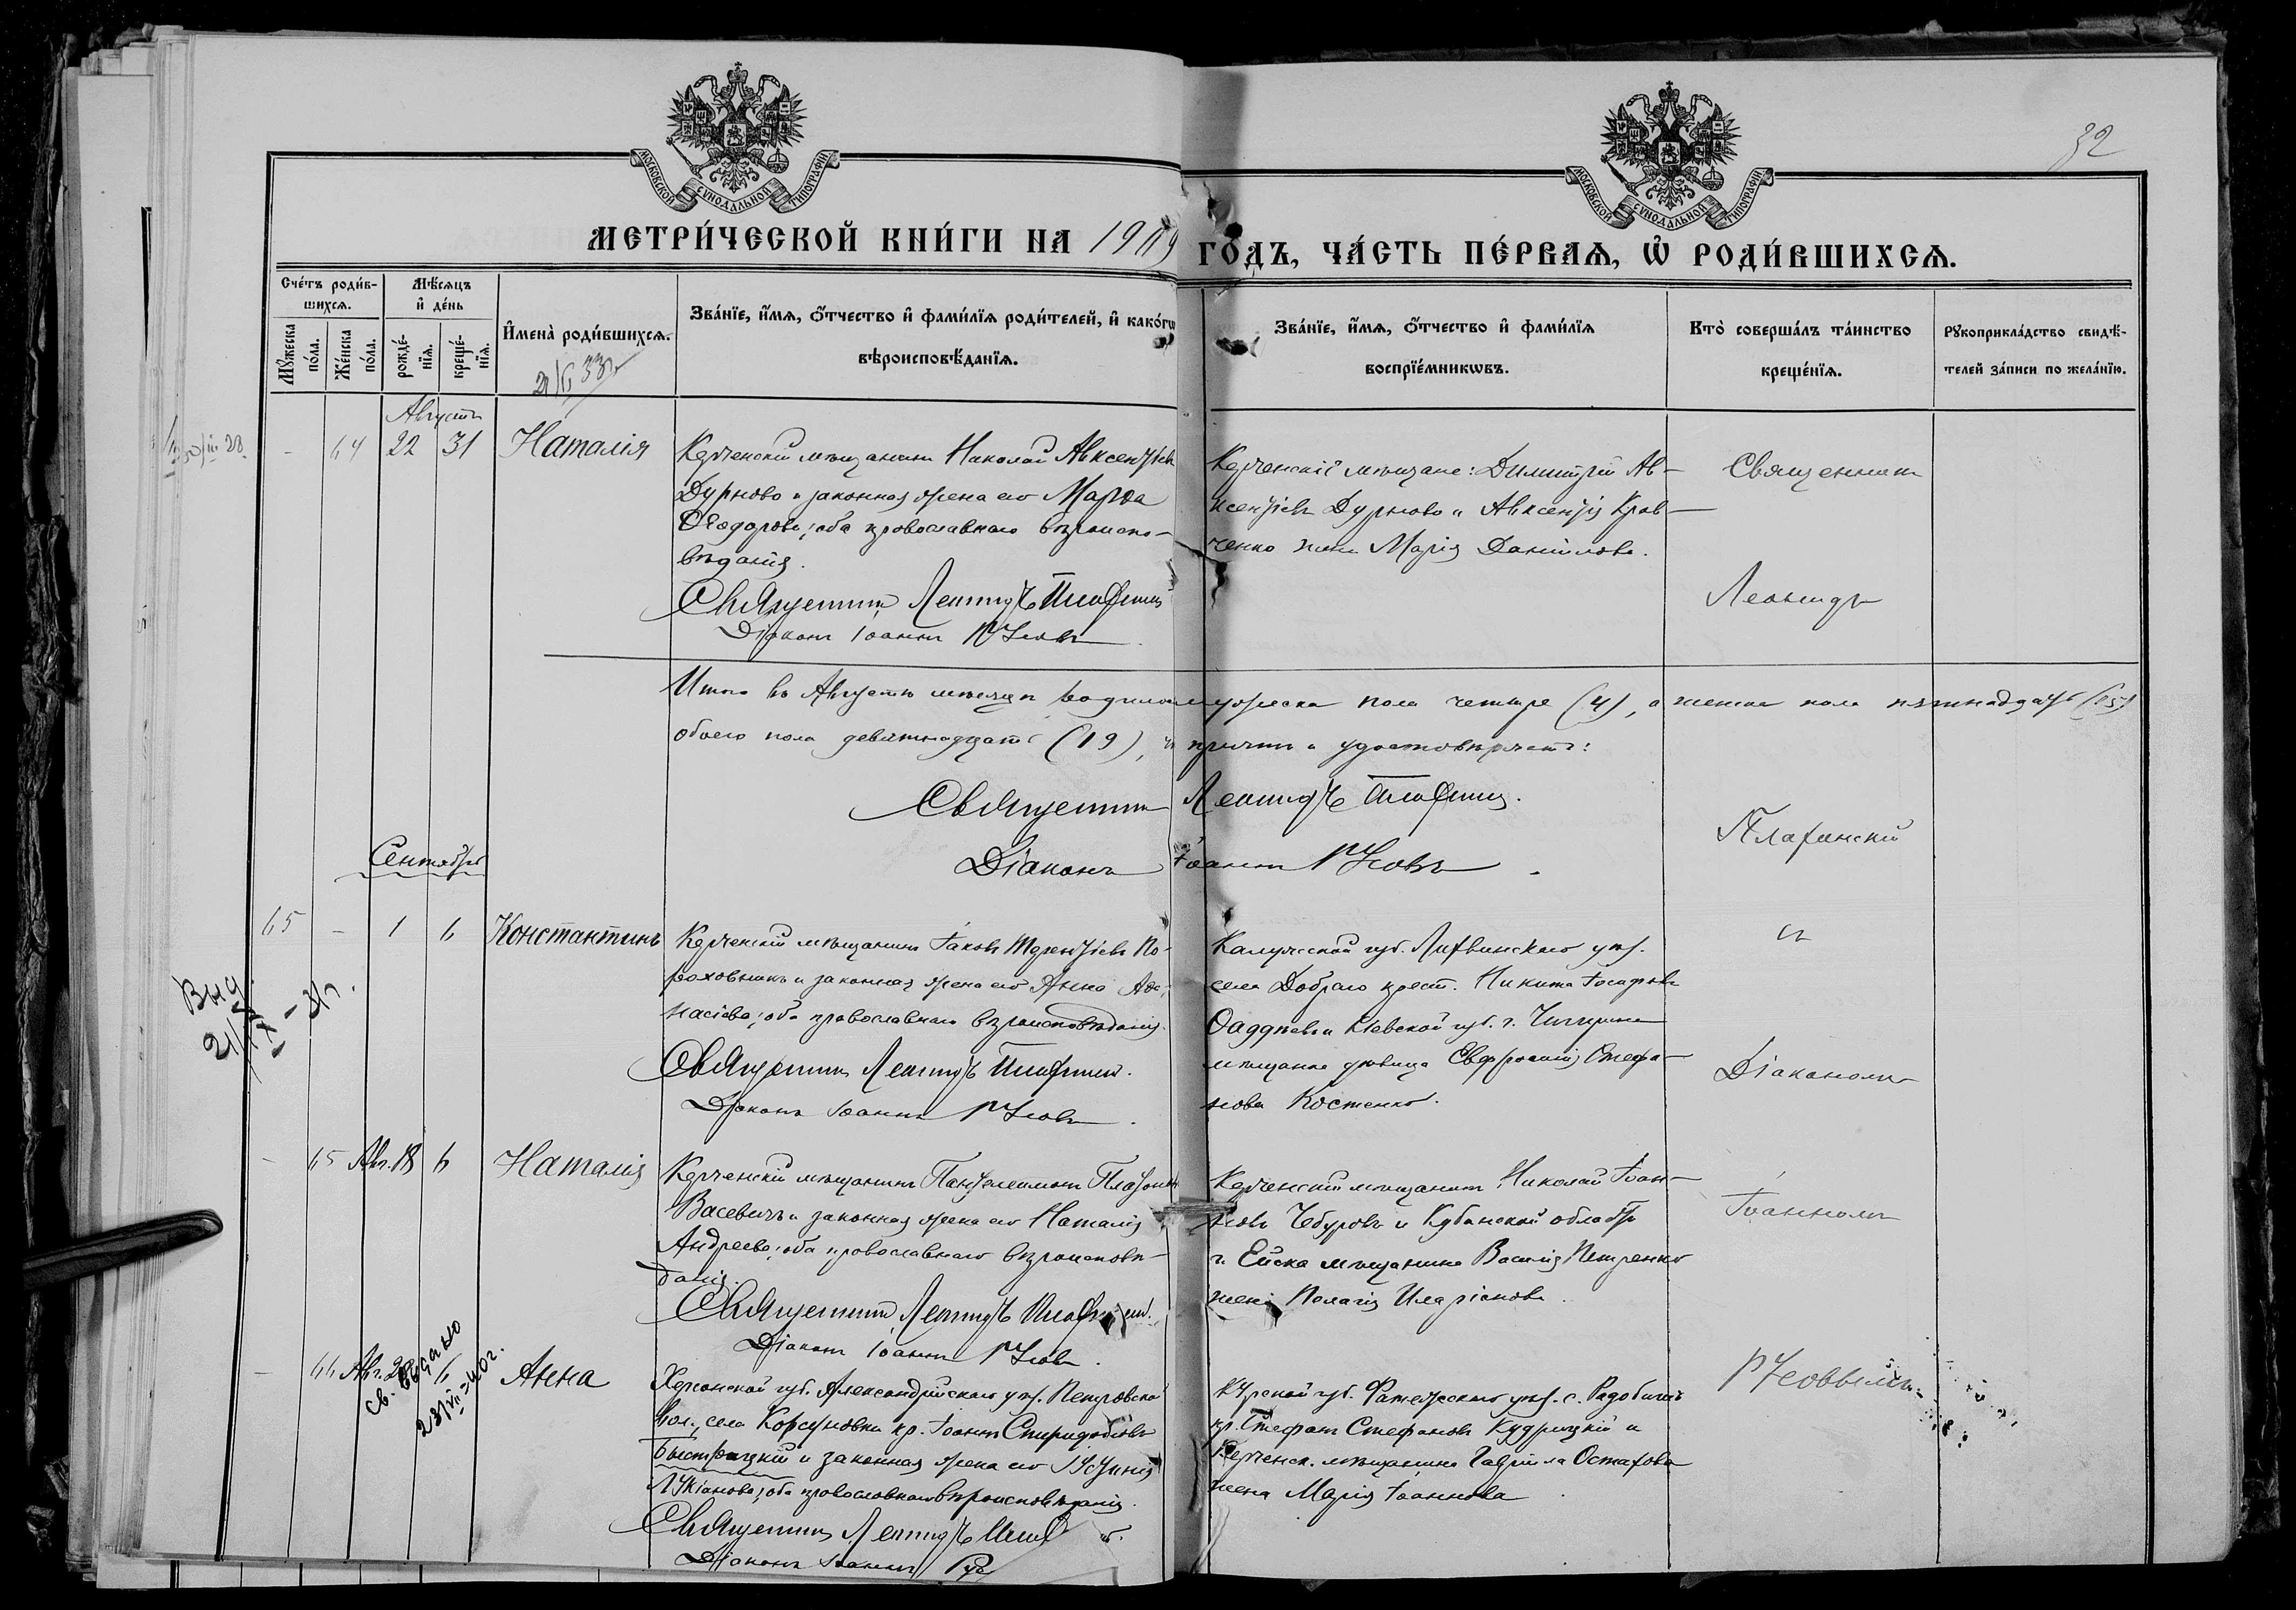 МОСКОВСКОЙ СУНОДАЛЬНОЙ ТИПОГРАФІИ
МОСКОВСКОЙ СУНОДАЛЬНОЙ ТИПОГРАФІИ
32
МЕТРИ́ЧЕСКОЙ КНИ́ГИ НА 1909 ГО́ДЪ, ЧА́СТЬ ПЕ́РВАѦ, Ѡ҆ РОДИ́ВШИХСѦ.
Сче́тъ роди́в-
шихсѧ.
Мꙋ́жеска по́ла.
Же́нска по́ла.
Мѣ́сѧцъ
и҆ де́нь
рожде́-нїѧ.
креще́-нїѧ.
И҆мена̀ роди́вшихсѧ.
Зва́нїе, и҆́мѧ, ѻ҆́тчество и҆ фами́лїѧ роди́телей, и҆ како́гѡ
вѣроисповѣ́данїѧ.
Зва́нїе, и҆́мѧ, ѻ҆́тчество и҆ фами́лїѧ
воспрїе́мникѡвъ.
Кто̀ соверша́лъ та́инство
креще́нїѧ.
Рꙋкоприкла́дство свидѣ́-
телей за́писи по жела́нїю.
Августъ
- 64 22 31 Наталія
Керченскій мѣщанинъ Николай Авксентіевъ
Дурново и законная жена его Марѳа
Ѳеодорова; оба православнаго вѣроиспо-
вѣданія.
Священникъ Леонидъ Плафинскій
Діаконъ Іоаннъ Русовъ
Керченскіе мѣщане: Димитрій Ав-
ксентіевъ Дурново и Авксентія Крав-
ченко жена Марія Даніилова.
Священникъ
Леонидъ
Итого въ Августѣ мѣсяцѣ родилось мужеска пола четыре (4), а женска пола пятнадцать (15)
обоего пола девятнадцать (19), что причтъ и удостовѣряетъ:
Священникъ Леонидъ Плафинскій.
Діаконъ Іоаннъ Русовъ.
Плафинскій
Сентябрь
65 - 1 6 Константинъ
Керченскій мѣщанинъ Іаковъ Терентіевъ По-
роховникъ и законная жена его Анна Аѳа-
насіева; оба православнаго вѣроисповѣданія.
Священникъ Леонидъ Плафинскій.
Діаконъ Іоаннъ Русовъ.
Калужской губ. Лихвинскаго уѣз.
села Добраго крест. Никита Іосифовъ
Ѳаддѣевъ и Кіевской губ. г. Чигирина
мѣщанка дѣвица Евфросинія Стефа-
нова Костенко.
съ
Діакономъ
Выд.
21/IX - 31г.
- 65 Авг. 18 6 Наталія
Керченскій мѣщанинъ Пантелеимонъ Платоновъ
Васевичъ и законная жена его Наталія
Андреева; оба православнаго вѣроисповѣ-
данія.
Священникъ Леонидъ Плафинскій.
Діаконъ Іоаннъ Русовъ.
Керченскій мѣщанинъ Николай Іоан-
новъ Чебуровъ и Кубанской области
г. Ейска мѣщанина Василія Петренко
жена Пелагія Иларіонова.
Іоанномъ
- 66 Авг. 6 Анна
Св. выдано
23/VII-40г.
Херсонской губ. Александрійскаго уѣз. Петровской
вол., села Корсуновки кр. Іоаннъ Спиридоновъ
Быстрицкій и законная жена его Іустинія
Лукіанова; оба православнаго вѣроисповѣданія.
Священникъ Леонидъ
Діаконъ Іоаннъ Рус
Курской губ. Фатежскаго уѣз. с. Радобичъ
кр. Стефанъ Стефановъ Кудрицкій и
Керченск. мѣщанина Гавріила Остахова
жена Марія Іоаннова
Русовымъ